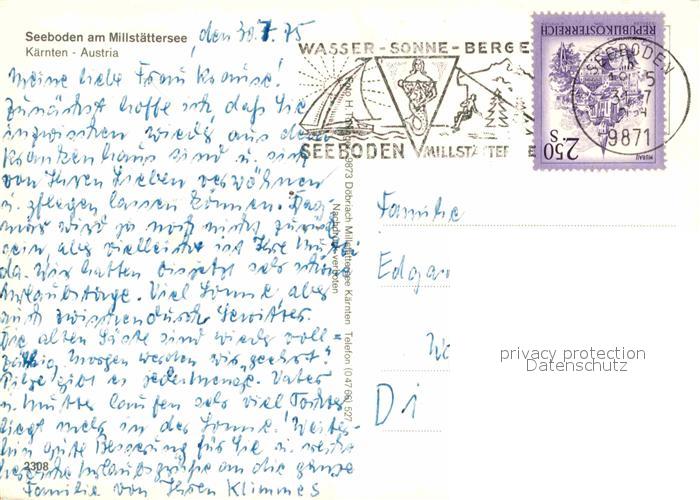 Seeboden am Millstättersee
Kärnten - Austria
den 30.7.75
Meine liebe Frau Krause!
Zunächst hoffe ich, daß Sie
inzwischen wieder aus dem
Krankenhaus sind u. sich
von Ihren Lieben verwöhnen
u. pflegen lassen können.
wird ja noch nicht zurück
sein, aber vielleicht ist Ihre
da. Wir hatten bisjetzt sehr schöne
Urlaubstage. Viel Sonne, aber
auch zwischendurch Gewitter.
Die alten Gäste sind wieder voll-
zählig. Morgen werden wir „geehrt".
Pilze gibt es jedemenge. Vater
u. Mutter laufen sehr viel Tochter
liegt mehr in der Sonne! Weiter-
hin gute Besserung für Sie u. recht
herzliche Urlaubsgrüße an die ganze
Familie von Ihren Klimmes
2308
WASSER-SONNE-BERGE
SEEBODEN MILLSTÄTTER
REPUBLIK ÖSTERREICH
S 2.50
MURAU
SEEBODEN
9871
9873 Döbriach Millstättersee Kärnten Telefon (0 47 66) 527
Nachdruck verboten
Familie
Edgar
We
Di
privacy protection
Datenschutz